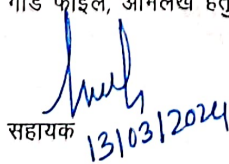 गार्ड फाईल, अभिलेख हेतु
सहायक
13/03/2024